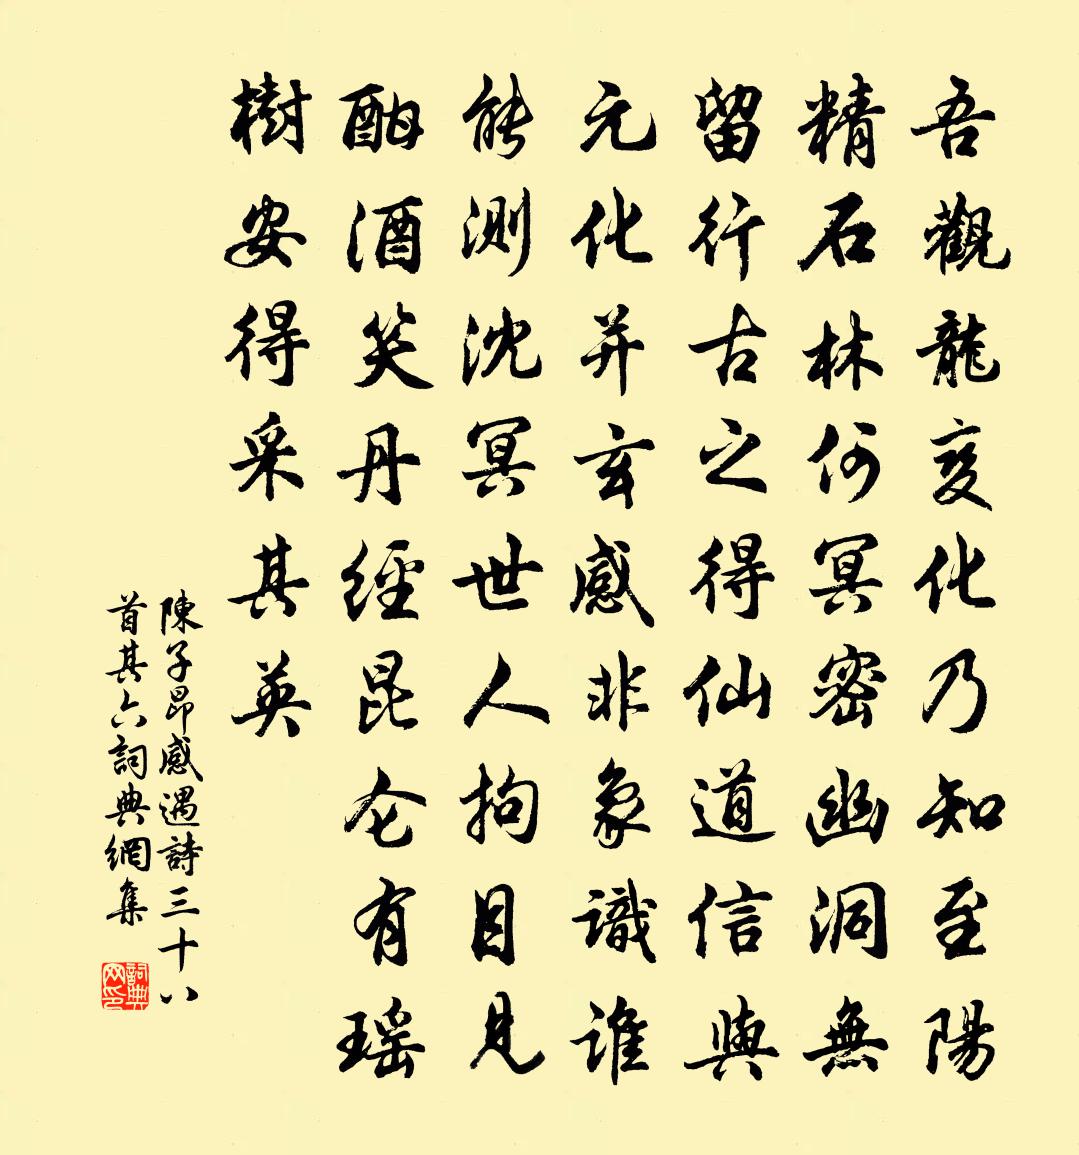 吾觀龍變化乃知至陽
精石林何冥密幽洞無
留行古之得仙道信與
元化并玄感非象識誰
能測沈冥世人拘目見
酣酒笑丹經昆仑有瑶
樹安得采其英
陳子昂感遇詩三十八
首其六詞典網集
詞典
网印